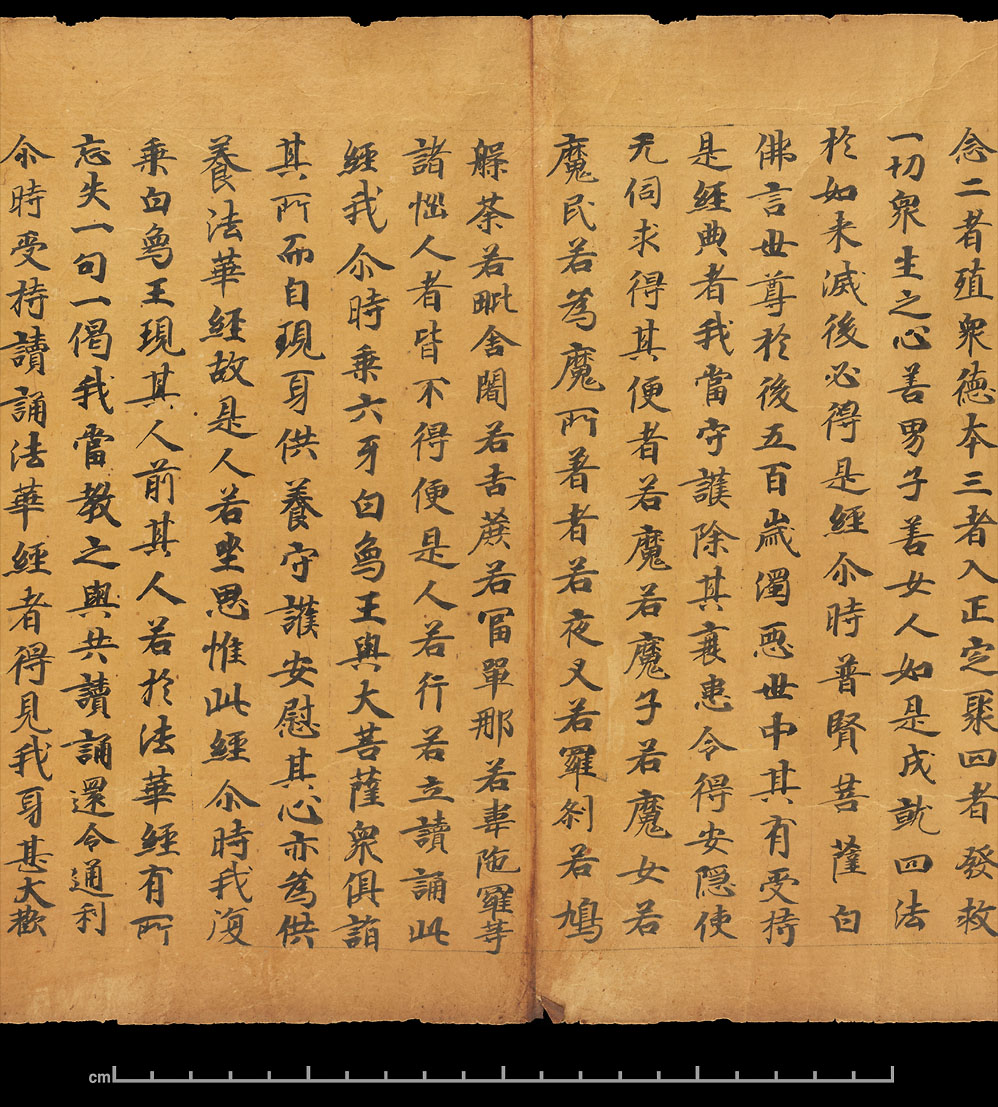 念二者殖衆徳本三者入正定聚四者發救
一切衆生之心善男子善女人如是成就四法
於如来滅後必得是經尒時普賢菩薩白
佛言世尊於後五百歳濁惡世中其有受持
是經典者我當守護除其襄患令得安隠使
无伺求得其便者若魔若魔子若魔女若
魔民若為魔所著者若夜叉若羅刹若鳩
槃荼若毗舍闍若吉蔗若富單那若韋陁羅等
諸惱人者皆不得便是人若行若立讀誦此
經我尒時乗六牙白鳥王與大菩薩衆俱詣
其所而自現身供養守護安慰其心亦為供
養法華經故是人若坐思惟此經尒時我復
乗白鳥王現其人前其人若於法華經有所
忘失一句一偈我當教之與共讀誦還令通利
尒時受持讀誦法華經者得見我身甚大歡